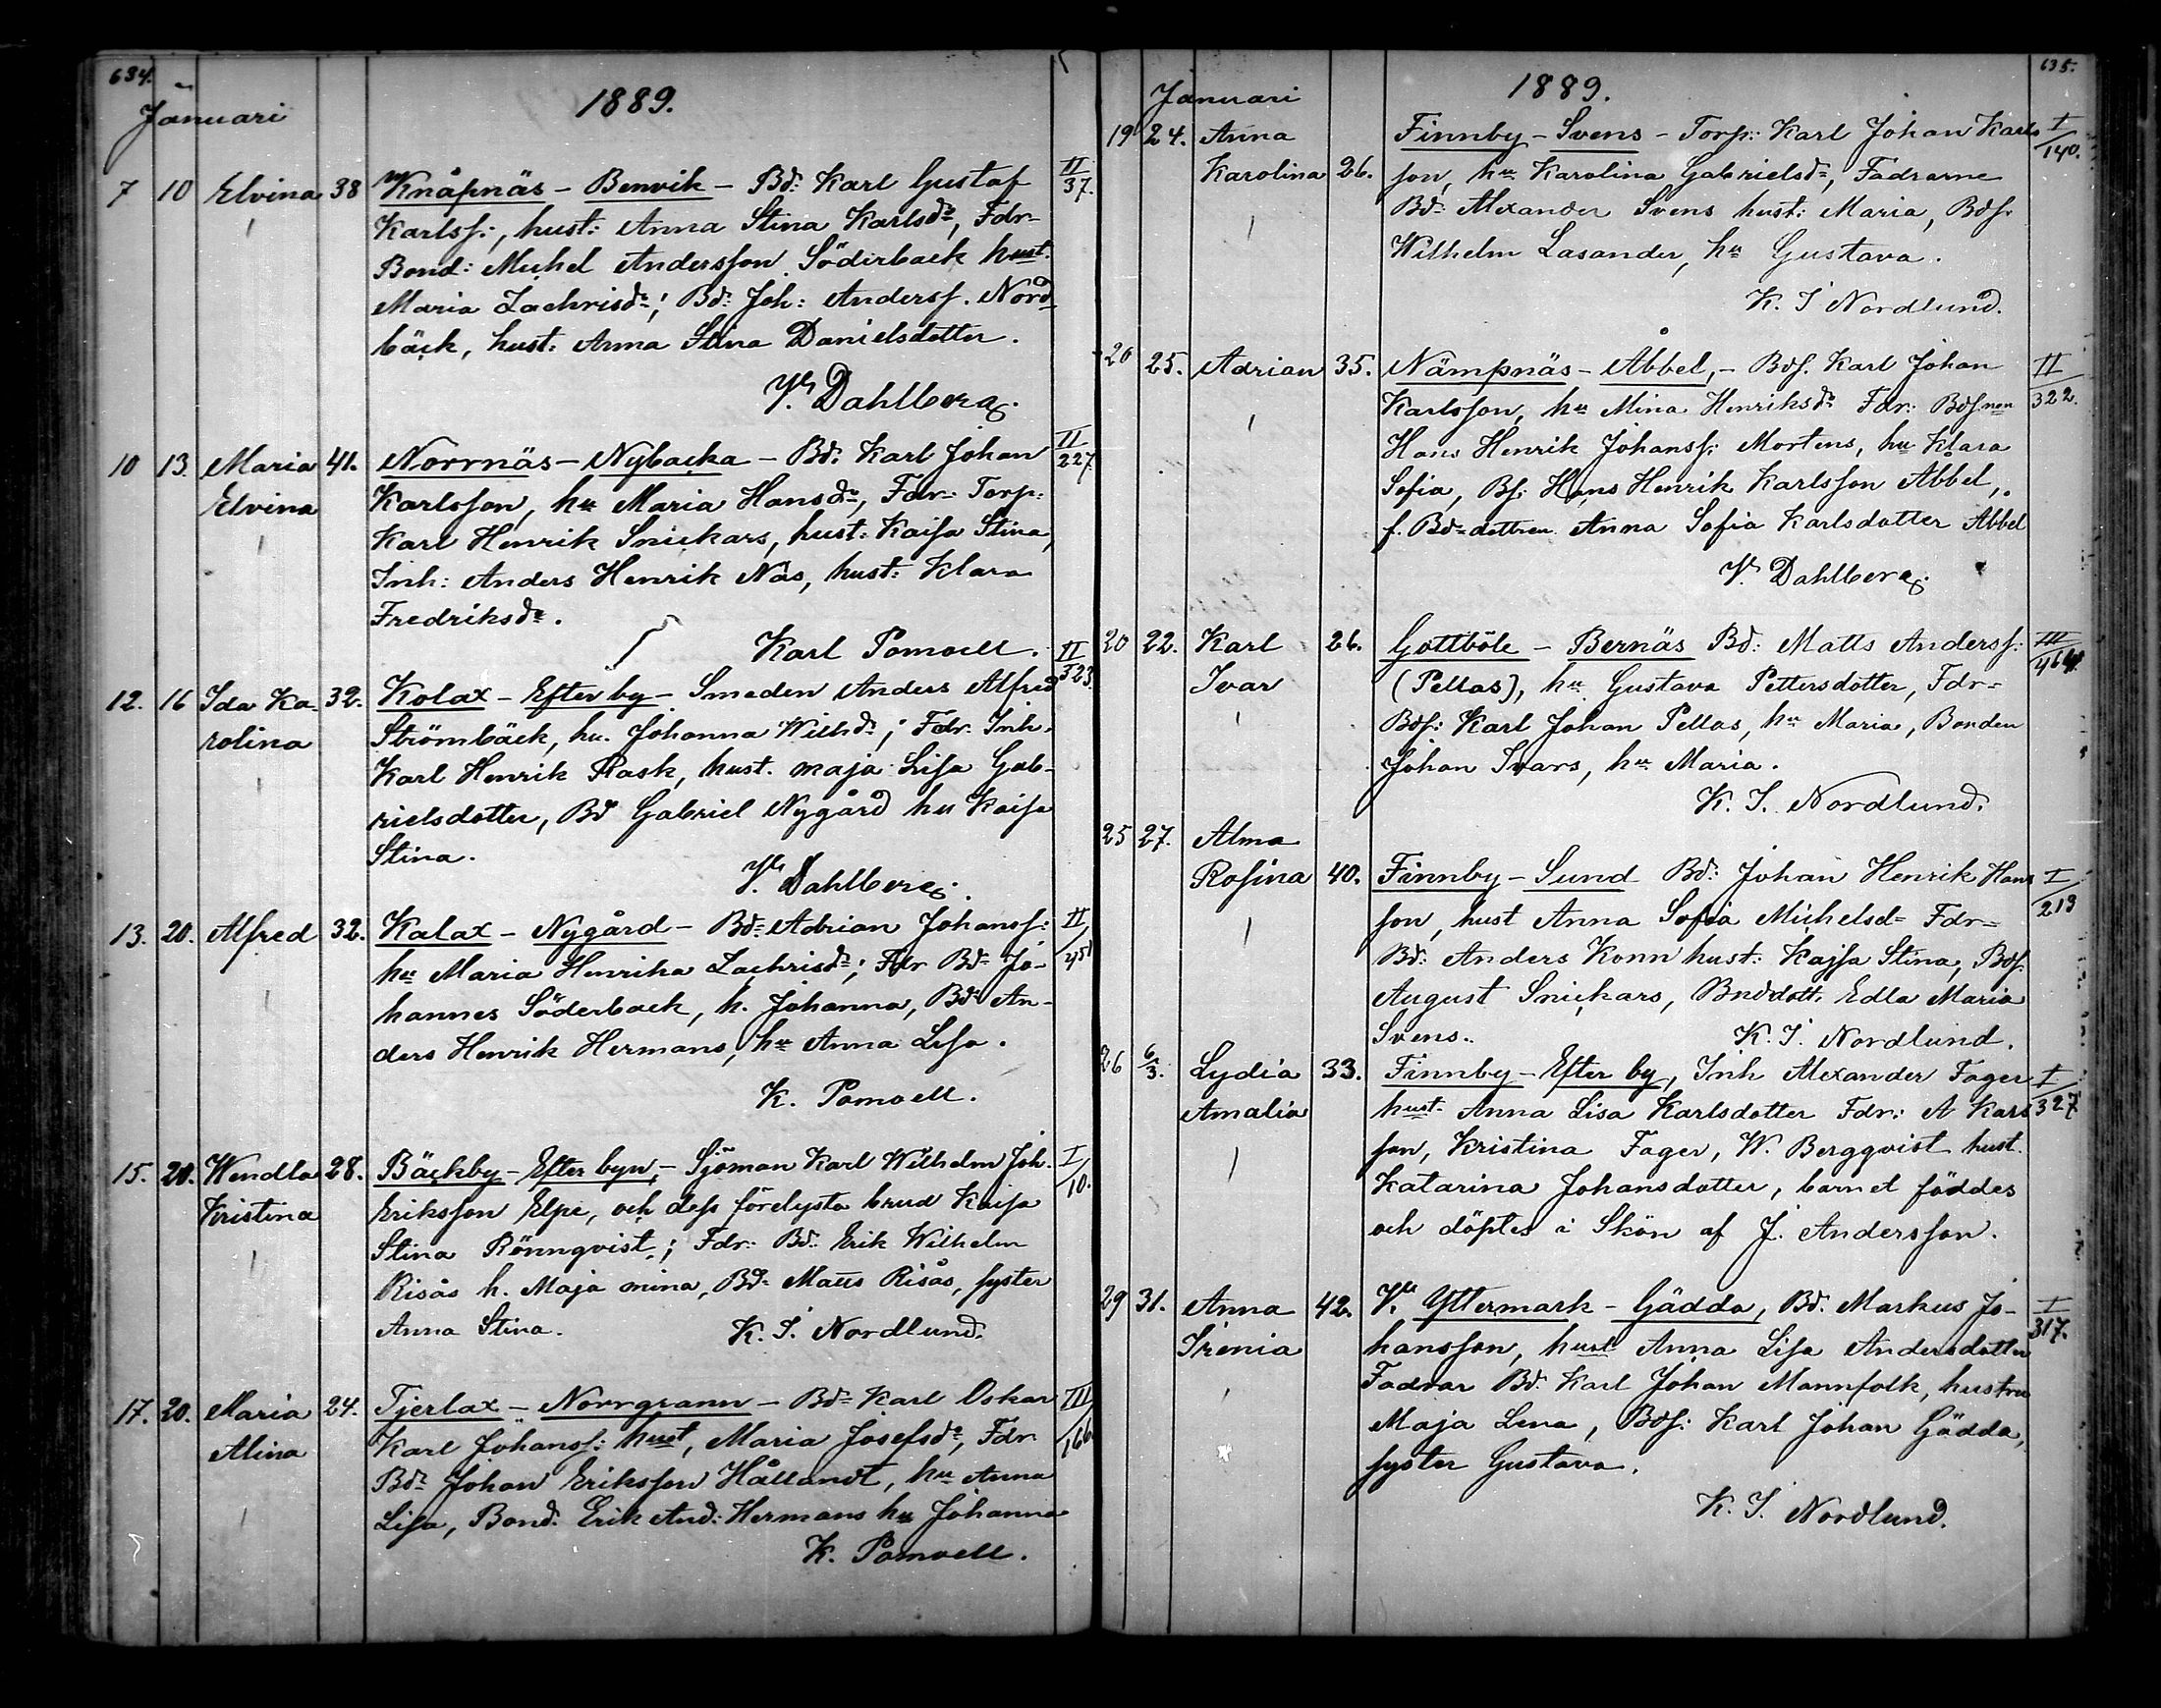 634.
Januari 1889.
7 10 Elvina 38 Knåpnäs - Benvik - Bd: Karl Gustaf II/37.
Karlss:, hust: Anna Stina Karlsdr, Fdr-
Bond: Michel Andersson Söderback hust.
Maria Zachrisdr; Bd: Joh: Anderss. Nord-
bäck, hust: Anna Stina Danielsdotter.
V. Dahlberg.
10 13. Maria 41. Norrnäs - Nybacka - Bd: Karl Johan II/227
Elvina Karlsson, hu Maria Hansdr, Fdr: Torp:
Karl Henrik Snickars, hust: Kaisa Stina,
Inh: Anders Henrik Näs, hust: Klara
Fredriksdr.
Karl Pomoell.
12. 16 Ida Ka- 32. Kolax - Efter by - Smeden Anders Alfred II/323.
rolina Strömbäck, hu. Johanna Wilhdr; Fdr. Inh.
Karl Henrik Rask, hust. Maja Lisa Gab-
rielsdotter, Bd Gabriel Nygård hu Kaisa
Stina.
V. Dahlberg.
13. 20. Alfred 32. Kalax - Nygård - Bd: Adrian Johanss: II/451
hu Maria Henrika Zachrisdr; Fdr Bd: Jo-
hannes Söderback, h. Johanna, Bd: An-
ders Henrik Hermans, hu Anna Lisa.
K. Pomoell.
15. 20. Wendla 28. Bäckby - Efter byn, - Sjöman Karl Wilhelm Joh. I/10.
Kristina Eriksson Elpe, och dess förelysta brud Kaisa
Stina Rönnqvist; Fdr: Bd: Erik Wilhelm
Risås h. Maja Mina, Bd: Matts Risås, syster
Anna Stina. K. I. Nordlund.
17. 20. Maria 24. Tjerlax - Norrgrann - Bd: Karl Oskar III/166
Alina Karl Johanss: hust, Maria Josefsdr, Fdr.
Bdr Johan Eriksson Hållandt, hu Anna
Lisa, Bond. Erik And: Hermans hu Johanna
K. Pomoell.
635.
Januari 1889.
19 24. Anna Finnby - Svens - Torp: Karl Johan Karls I/140.
Karolina 26. son, hu Karolina Gabrielsdr, Fadrarne
Bd: Alexander Svens hust: Maria, Bds.
Wilhelm Lasander, hu Gustava.
K. I Nordlund.
20 25. Adrian 35. Nämpnäs - Abbel, - Bds. Karl Johan II/322.
Karlsson, hu Mina Henriksdr Fdr: Bdsnen
Hans Henrik Johanss: Mortens, hu Klara
Sofia, Bs: Hans Henrik Karlsson Abbel,
f. Bd-dottren Anna Sofia Karlsdotter Abbel
V. Dahlberg.
20 22. Karl 26. Gottböle - Bernäs Bd: Matts Anderss: III/464.
Ivar (Pellas), hu Gustava Pettersdotter, Fdr-
Bds: Karl Johan Pellas, hu Maria, Bonden
Johan Ivars, hu Maria.
K. I. Nordlund.
25 27. Alma
Rosina 40. Finnby - Sund Bd: Johan Henrik Hans I/213
son, hust Anna Sofia Michelsd- Fdr-
Bd: Anders Konn hust: Kajsa Stina, Bds.
August Snickars, Bnddott. Edla Maria
Svens. K. I. Nordlund.
26 6/3. Lydia 33. Finnby - Efter by, Inh Alexander Fager I/327
Amalia hust. Anna Lisa Karlsdotter Fdr: A Kars
son, Kristina Fager, W. Bergqvist hust.
Katarina Johansdotter, barnet föddes
och döptes i Skön af J. Andersson.
29 31. Anna 42. V. Yttermark - Gädda, Bd. Markus Jo- I/317.
Irenia hansson, hust Anna Lisa Andersdotter
Fadrar Bd. Karl Johan Mannfolk, hustru
Maja Lena, Bds: Karl Johan Gädda,
syster Gustava.
K. I. Nordlund.